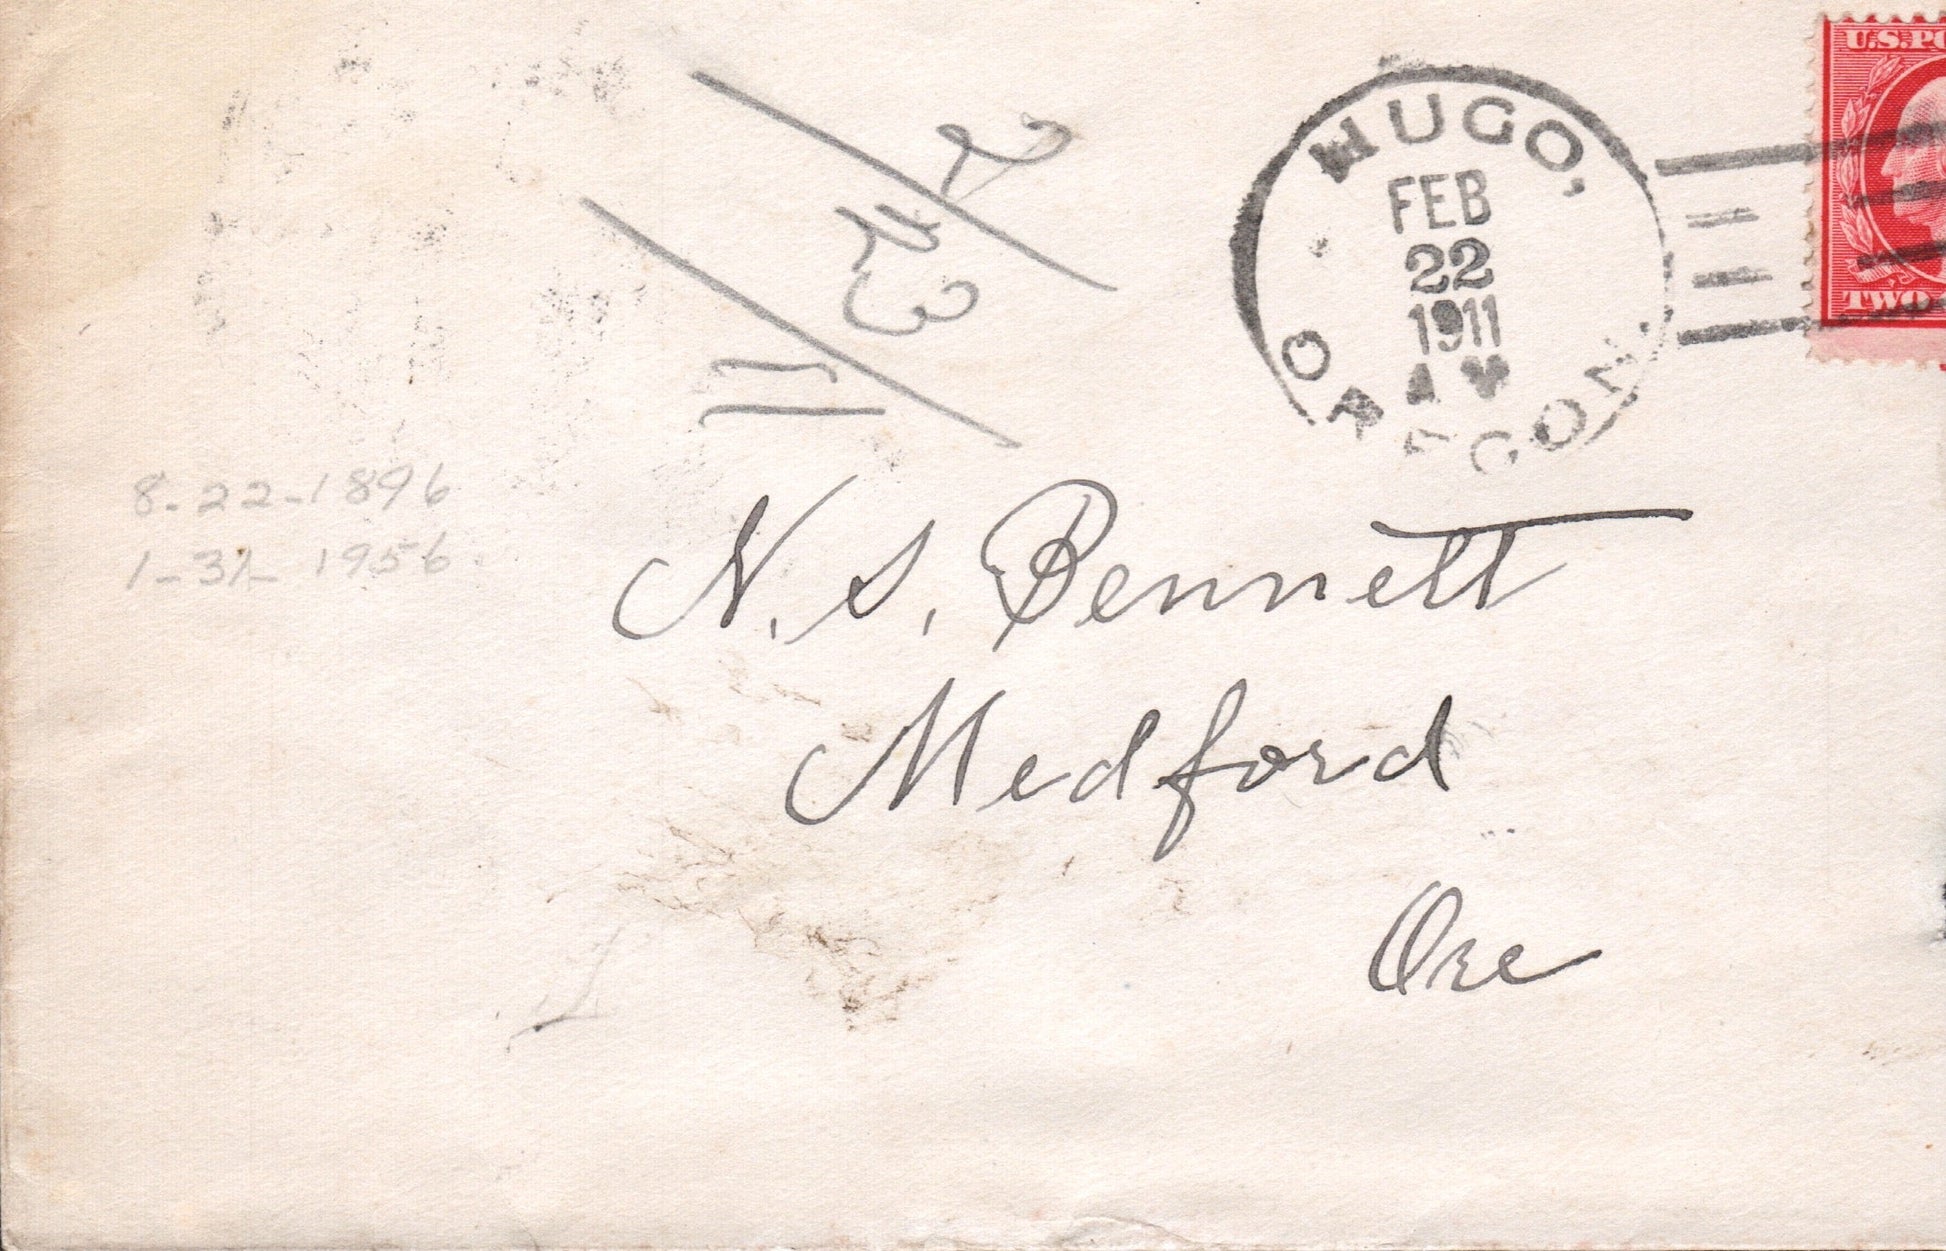 2/23/11
HUGO,
FEB
22
1911
A M
OREGON.
U.S.PO
TWO
8-22-1896
1-31-1956
N. S. Bennett
Medford
Ore